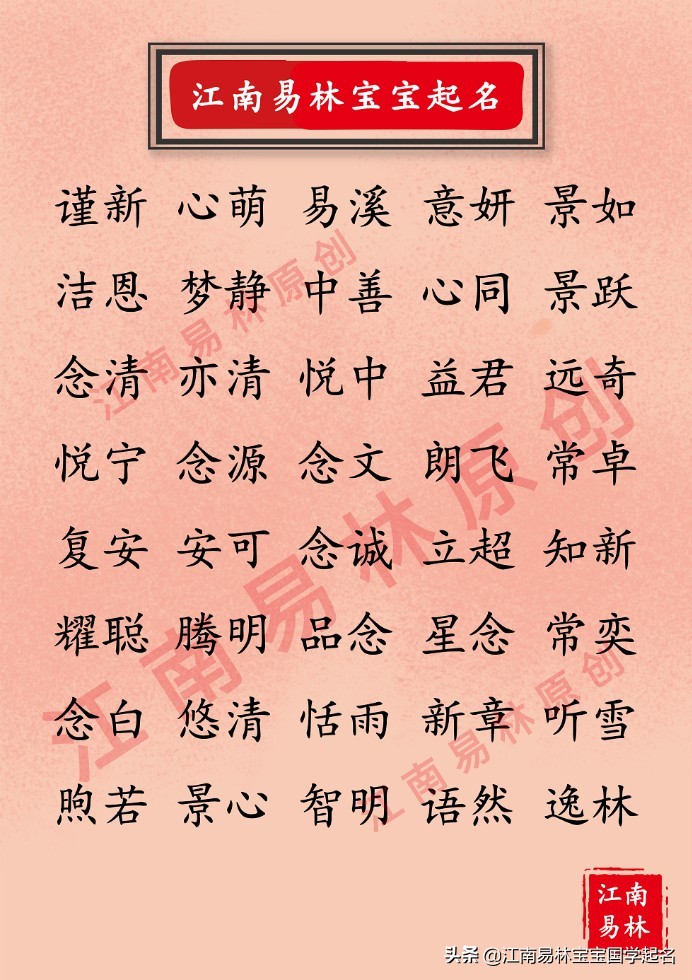 江南易林宝宝起名
谨新 心萌 易溪 意妍 景如
洁恩 梦静 中善 心同 景跃
念清 亦清 悦中 益君 远奇
悦宁 念源 念文 朗飞 常卓
复安 安可 念诚 立超 知新
耀聪 腾明 品念 星念 常奕
念白 悠清 恬雨 新章 听雪
煦若 景心 智明 语然 逸林
江南易林原创
江南易林原创
江南易林原创
江南
易林
头条 @江南易林宝宝国学起名